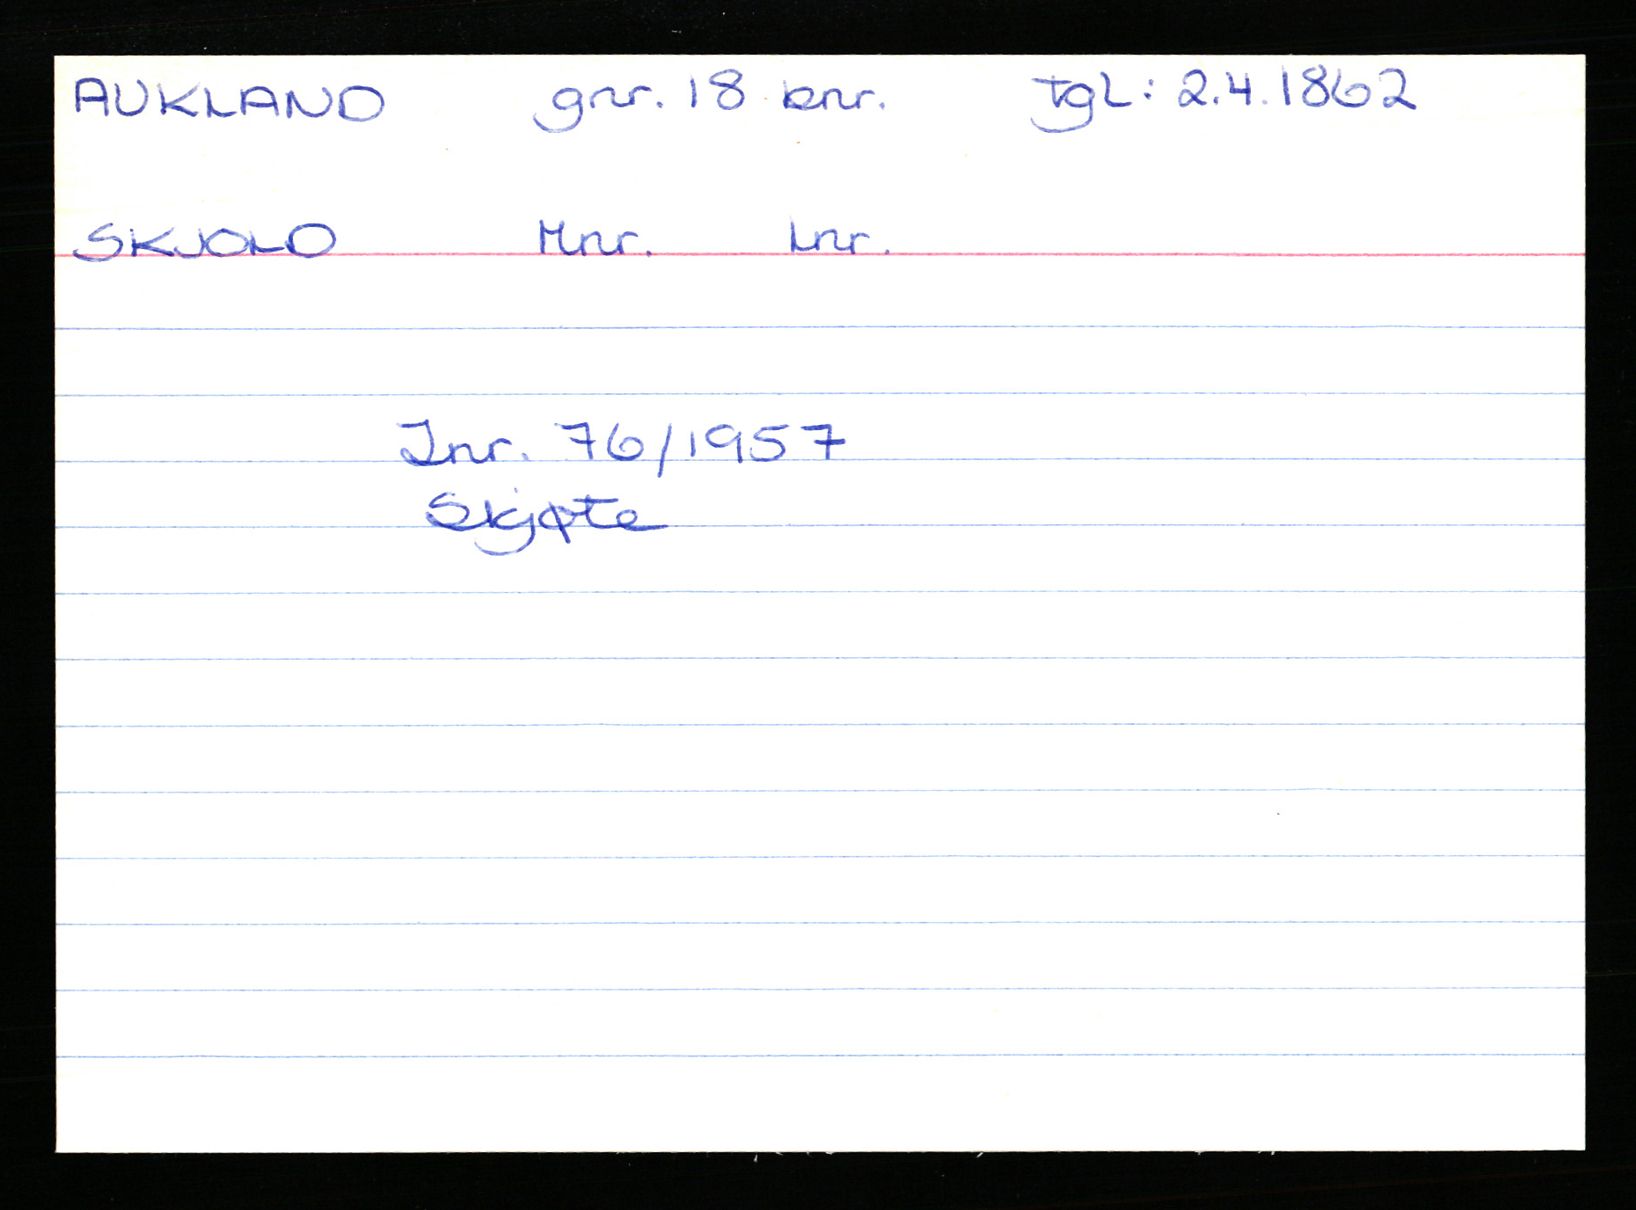 AUKLAND gnr. 18 bnr. tgl: 2.4.1862
SKJOLD Mnr. Lnr.
Jnr. 76/1957
Skjøte